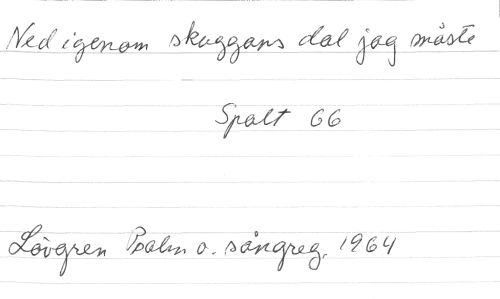 Ned igenom skuggans dal jag måste
Spalt 66
Lövgren Psalm o. sångreg. 1964